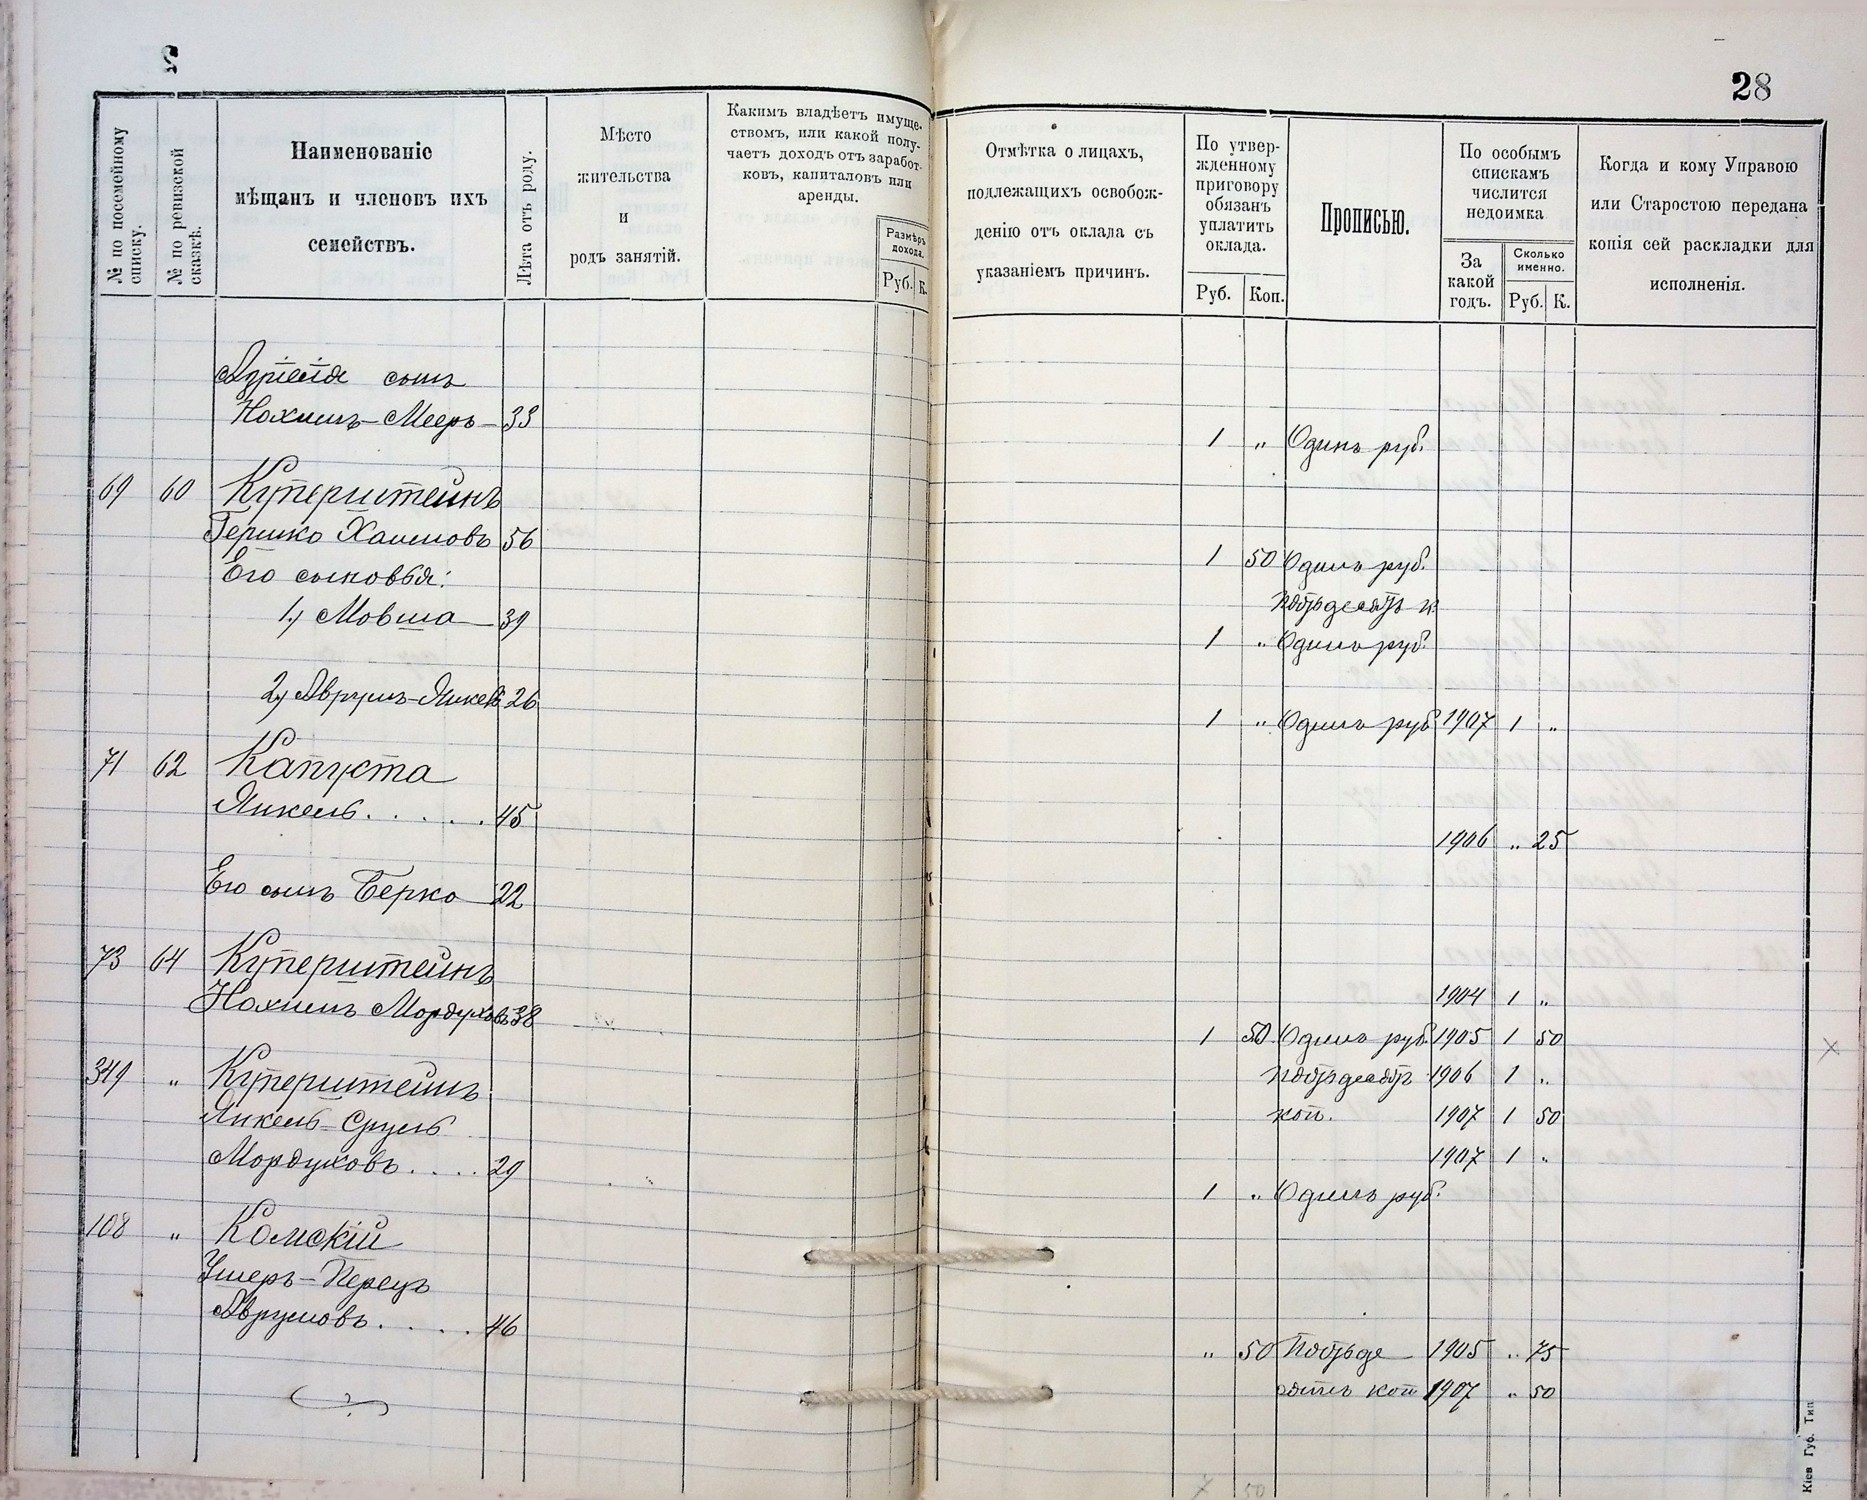 28
№ по посемейному списку.
№ по ревизской сказкѣ.
Наименованіе
мѣщанъ и членовъ ихъ
семействъ.
Лѣта отъ роду.
Мѣсто
жительства
и
родъ занятій.
Какимъ владѣетъ имуще-
ствомъ, или какой полу-
чаетъ доходъ отъ заработ-
ковъ, капиталовъ или
аренды.
Размѣръ
дохода.
Руб. К.
Отмѣтка о лицахъ,
подлежащихъ освобож-
денію отъ оклада съ
указаніемъ причинъ.
По утвер-
жденному
приговору
обязанъ
уплатить
оклада.
Руб. Коп.
Прописью.
По особымъ
спискамъ
числится
недоимка
За
какой
годъ.
Сколько
именно.
Руб. К.
Когда и кому Управою
или Старостою передана
копія сей раскладки для
исполненія.
сынъ
Нохимъ-Мееръ 33
1 " Одинъ руб.
69 60 Куперштейнъ
Гершко Хаимовъ 56
1 50 Одинъ руб.
Его сыновья:
пятьдесятъ к.
1) Мовша 39
1 " Одинъ руб.
2) Аврумъ-Янкель 26
1 " Одинъ руб. 1907 1 "
71 62 Капуста
Янкель. . . . . 45
1906 " 25
Его сынъ Берко 22
73 64 Куперштейнъ
1904 1 "
Нохимъ Мордуховъ 38
1 50 Одинъ руб. 1905 1 50
349 " Куперштейнъ
пятьдесятъ 1906 1 "
Янкель-Сруль
коп. 1907 1 50
Мордуховъ. . . . 29
1907 1 "
1 " Одинъ руб.
108 " Комскій
Ушеръ-Перецъ
Аврумовъ. . . . . 46
" 50 Пятьде 1905 " 75
сятъ коп 1907 " 50
50
Кіев Губ. Тип